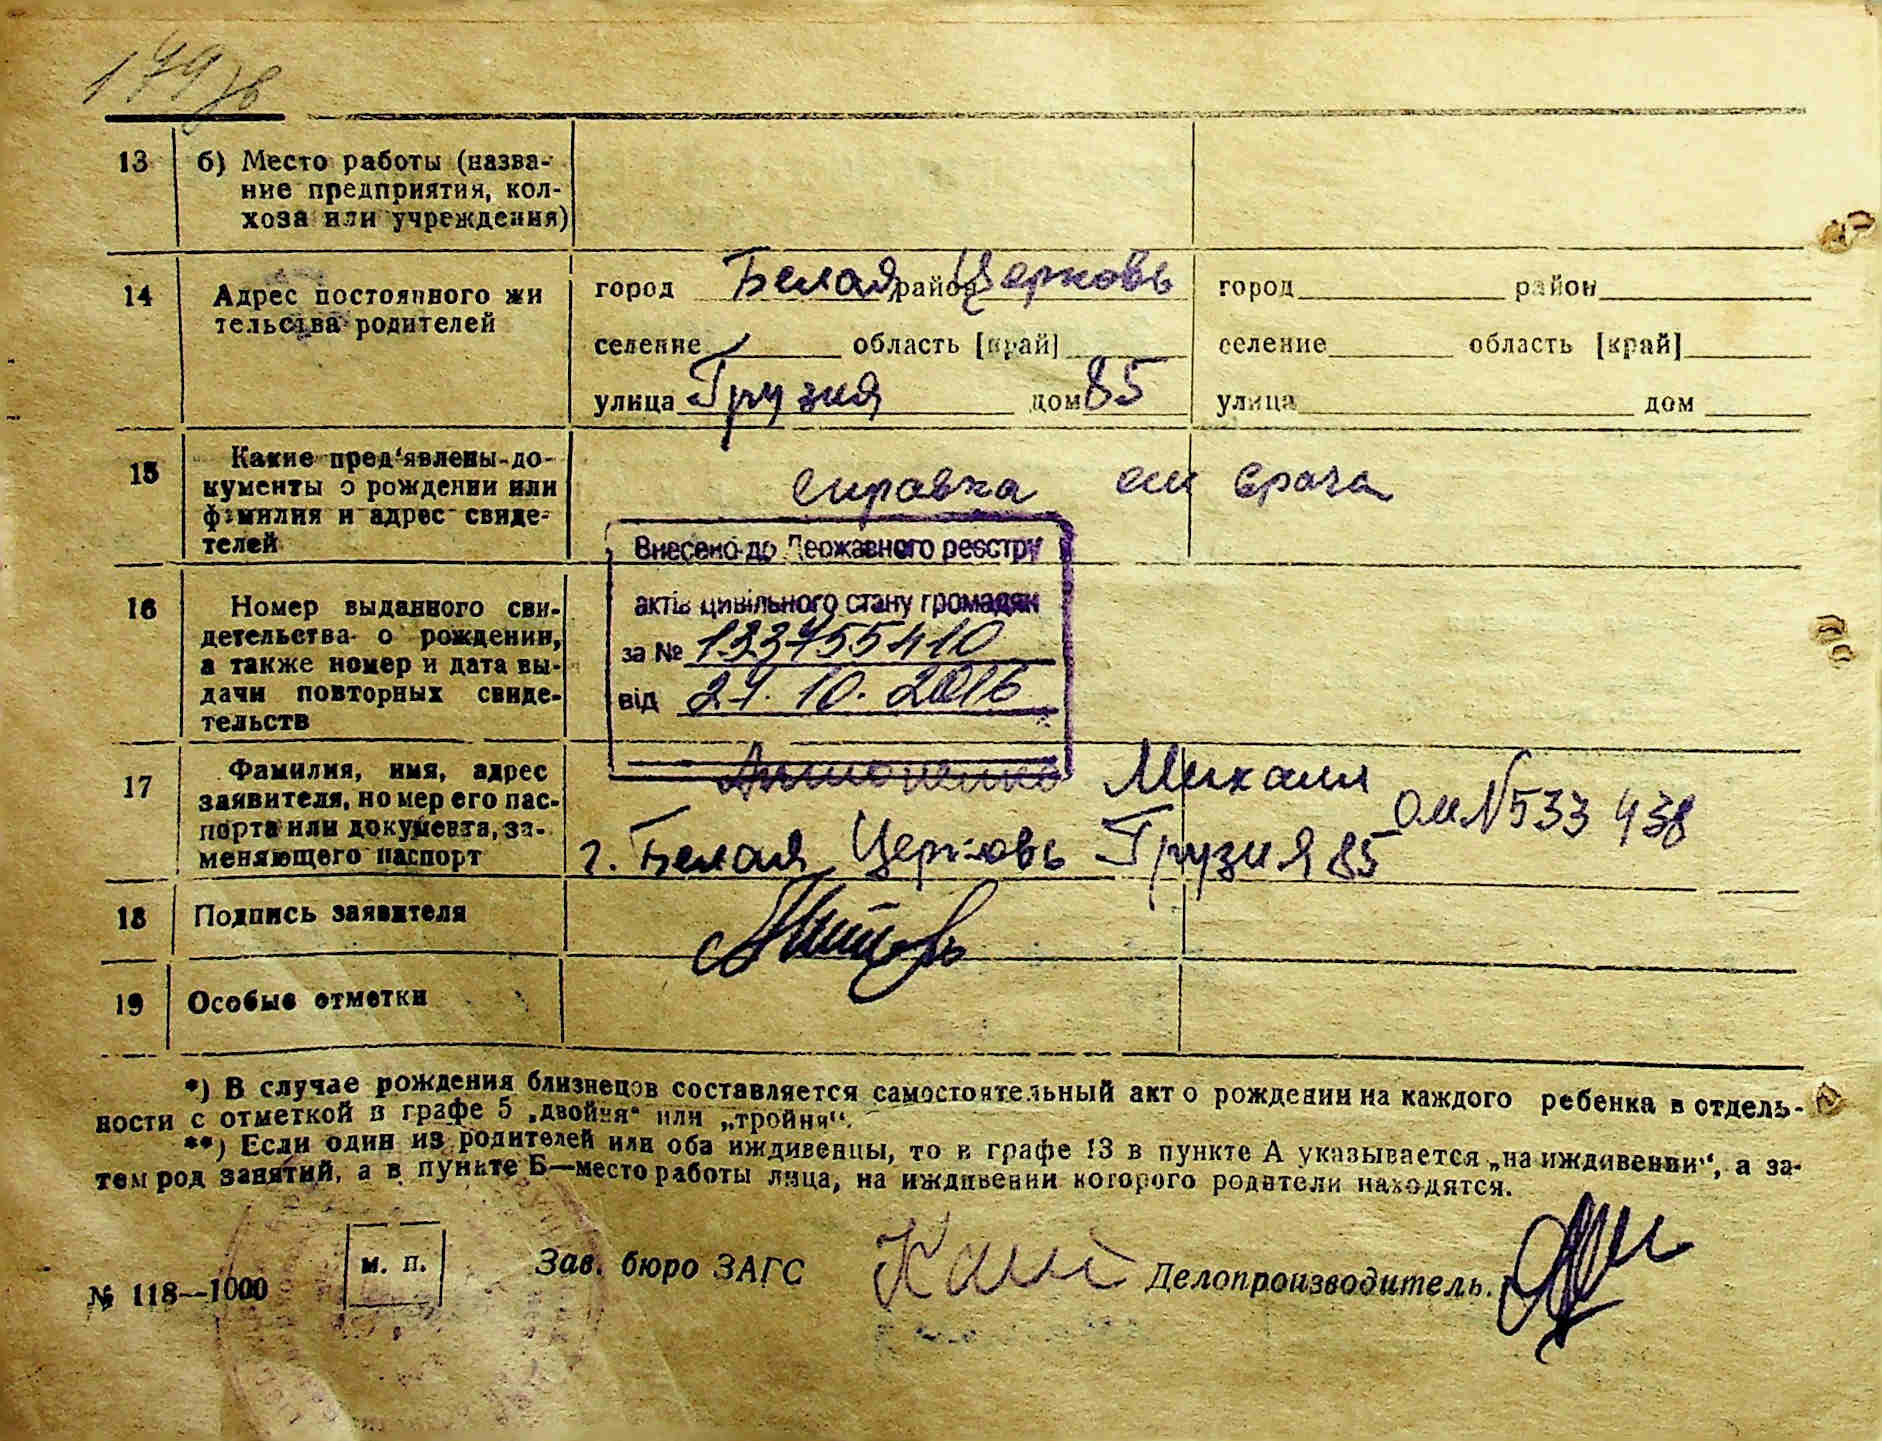 13 б) Место работы (назва-
ние предприятия, кол-
хоза или учреждения)
14 Адрес постоянного жи
тельства родителей
город Белая Церковь район
селение область [край]
улица Грузия дом 85
город район
селение область [край]
улица дом
15 Какие пред'явлены до-
кументы о рождении или
фамилия и адрес свиде-
телей
справка от врача
Внесено до Державного реєстру
актів цивільного стану громадян
за № 133755410
від 24.10.2016
16 Номер выданного сви-
детельства о рождении,
а также номер и дата вы-
дачи повторных свиде-
тельств
17 Фамилия, имя, адрес
заявителя, номер его пас-
порта или документа, за-
меняющего паспорт
Михаил
№ 533 438
г. Белая Церковь Грузия 85
18 Подпись заявителя
19 Особые отметки
*) В случае рождения близнецов составляется самостоятельный акт о рождении на каждого ребенка в отдель-
ности с отметкой в графе 5 „двойня“ или „тройня“.
**) Если один из родителей или оба иждивенцы, то в графе 13 в пункте А указывается „на иждивении“, а за-
тем род занятий, а в пункте Б—место работы лица, на иждивении которого родители находятся.
м. п.
Зав. бюро ЗАГС Делопроизводитель.
№ 118—1000